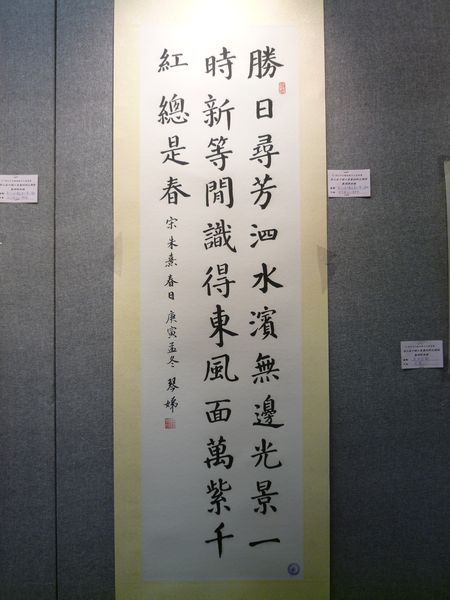 勝日尋芳泗水濱無邊光景一
時新等閒識得東風面萬紫千
紅總是春 宋朱熹春日 庚寅孟冬 琴娣